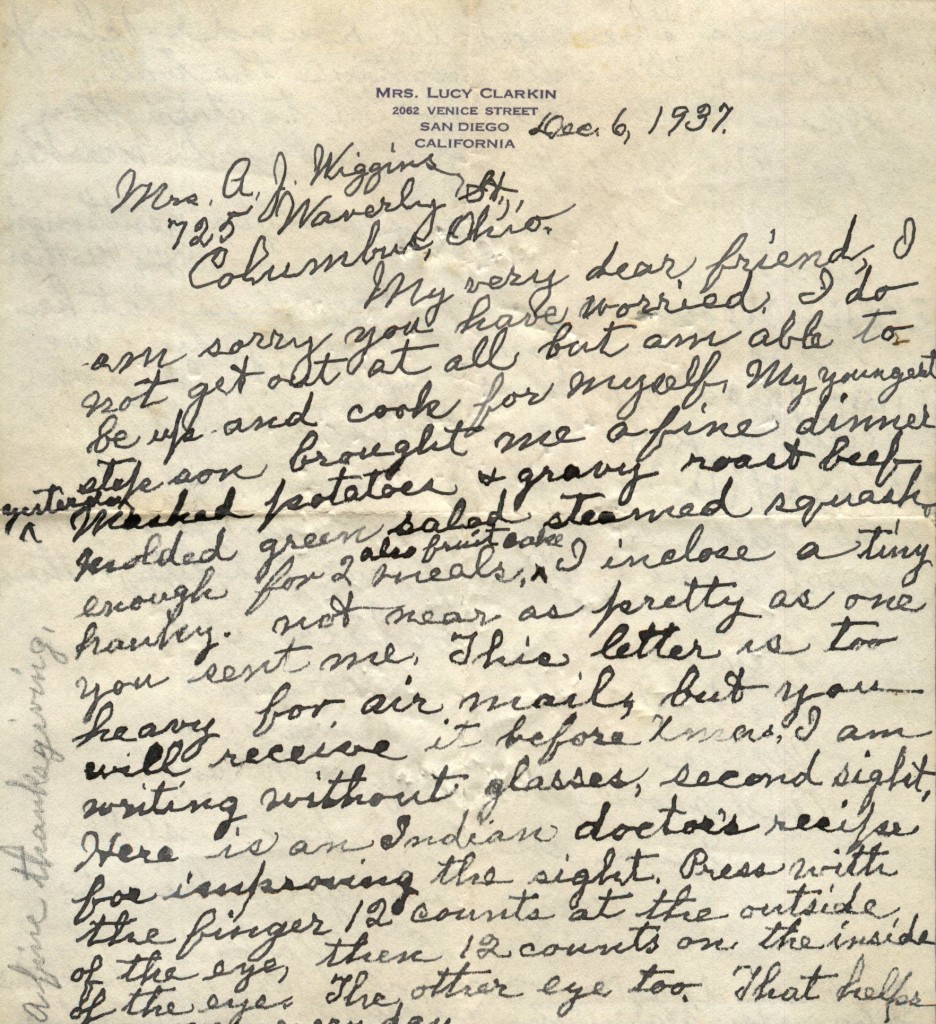 MRS. LUCY CLARKIN
2062 VENICE STREET
SAN DIEGO
CALIFORNIA
Dec. 6, 1937.
Mrs. A. J. Wiggins
725 Waverly St,
Columbus, Ohio.
My very dear friend, I
am sorry you have worried. I do
not get out at all but am able to
be up and cook for myself. My youngest
step son brought me a fine dinner
yesterday
Mashed potatoes & gravy roast beef
molded green salad steamed squash,
also fruit cake
enough for 2 meals, ^ I inclose a tiny
hanky. not near as pretty as one
you sent me. This letter is too
heavy for air mail, but you
will receive it before Xmas. I am
writing without glasses, second sight,
Here is an Indian doctor's recipe
for improving the sight. Press with
the finger 12 counts at the outside
of the eye, then 12 counts on the inside
of the eye. The other eye too. That helps
every day
A fine thanksgiving.